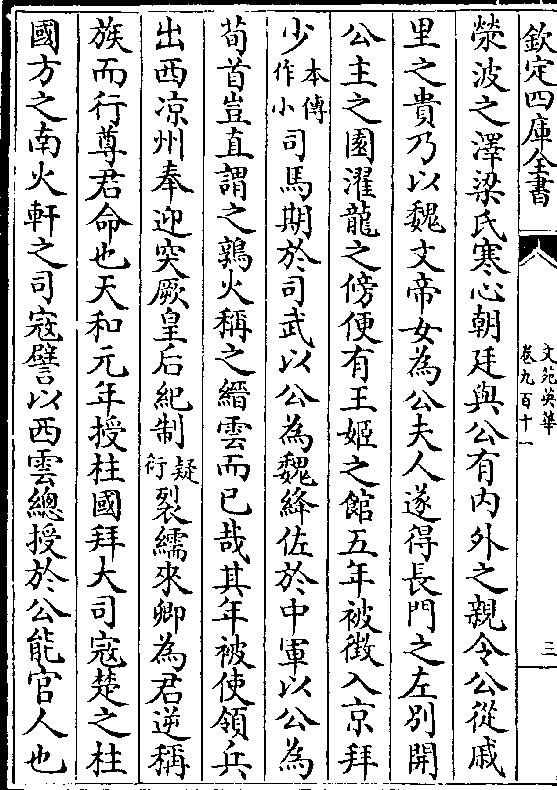 欽定四庫全書
文苑英華
卷九百十一
三
滎波之澤梁氏寒心朝廷與公有内外之親令公從戚
里之貴乃以魏文帝女為公夫人遂得長門之左别開
公主之園濯龍之傍便有王姬之館五年被徴入京拜
少本傳作小司馬期於司武以公為魏絳佐於中軍以公為
荀首豈直謂之鶉火稱之縉雲而已哉其年被使領兵
出西凉州奉迎突厥皇后紀制疑衍裂繻來卿為君逆稱
族而行尊君命也天和元年授柱國拜大司寇楚之柱
國方之南火軒之司寇譬以西雲總授於公能官人也